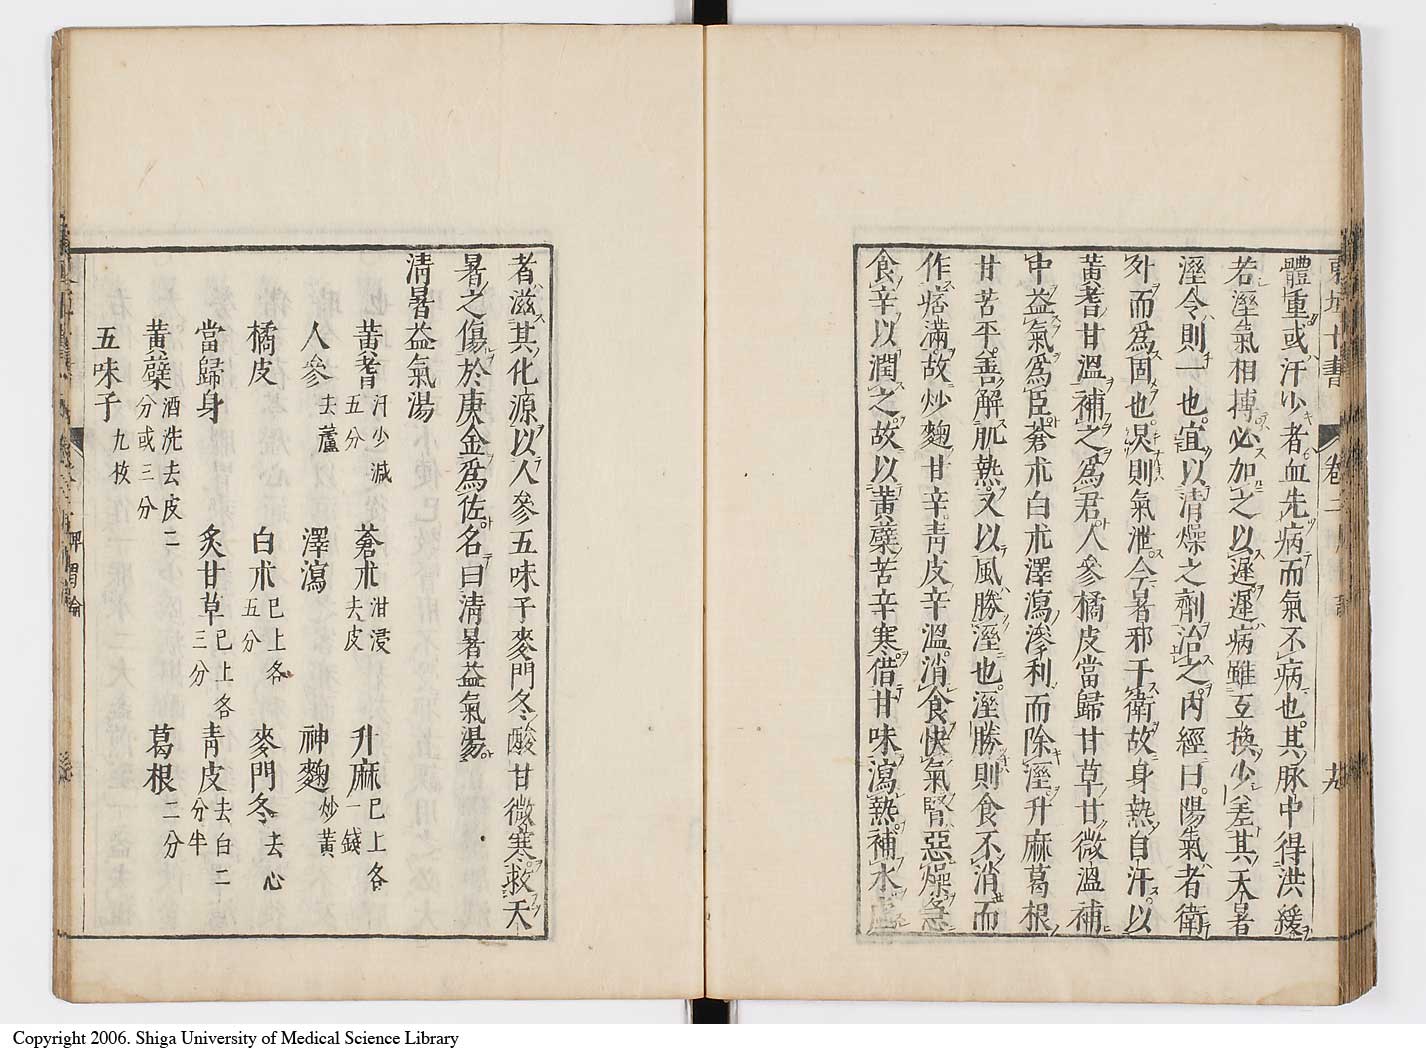 體重或汗少者血先病而氣不病也其脉中得洪緩
若溼氣相搏必加之以遲遲病雖互換少差其天暑
溼令則一也宜以清燥之劑治之內經曰陽氣者衛
外而爲固也炅則氣泄今暑邪干衛故身熱自汗以
黃耆甘溫補之爲君人參橘皮當歸甘草甘微溫補
中益氣爲臣蒼朮白朮澤瀉滲利而除溼升麻葛根
甘苦平善解肌熱又以風勝溼也溼勝則食不消而
作痞滿故炒麴甘辛青皮辛溫消食快氣腎惡燥急
食辛以潤之故以黃蘗苦辛寒借甘味瀉熱補水虛
者滋其化源以人參五味子麥門冬酸甘微寒救天
暑之傷於庚金爲佐名曰清暑益氣湯
清暑益氣湯
黃耆汗少減五分 蒼朮泔浸去皮 升麻已上各一錢
人參去蘆 澤瀉 神麴炒黃
橘皮 白朮已上各五分 麥門冬去心
當歸身 炙甘草已上各三分 青皮去白二分半
黃蘗酒洗去皮二分或三分 葛根二分
五味子九枚
脾胃論
Copyright 2006. Shiga University of Medical Science Library